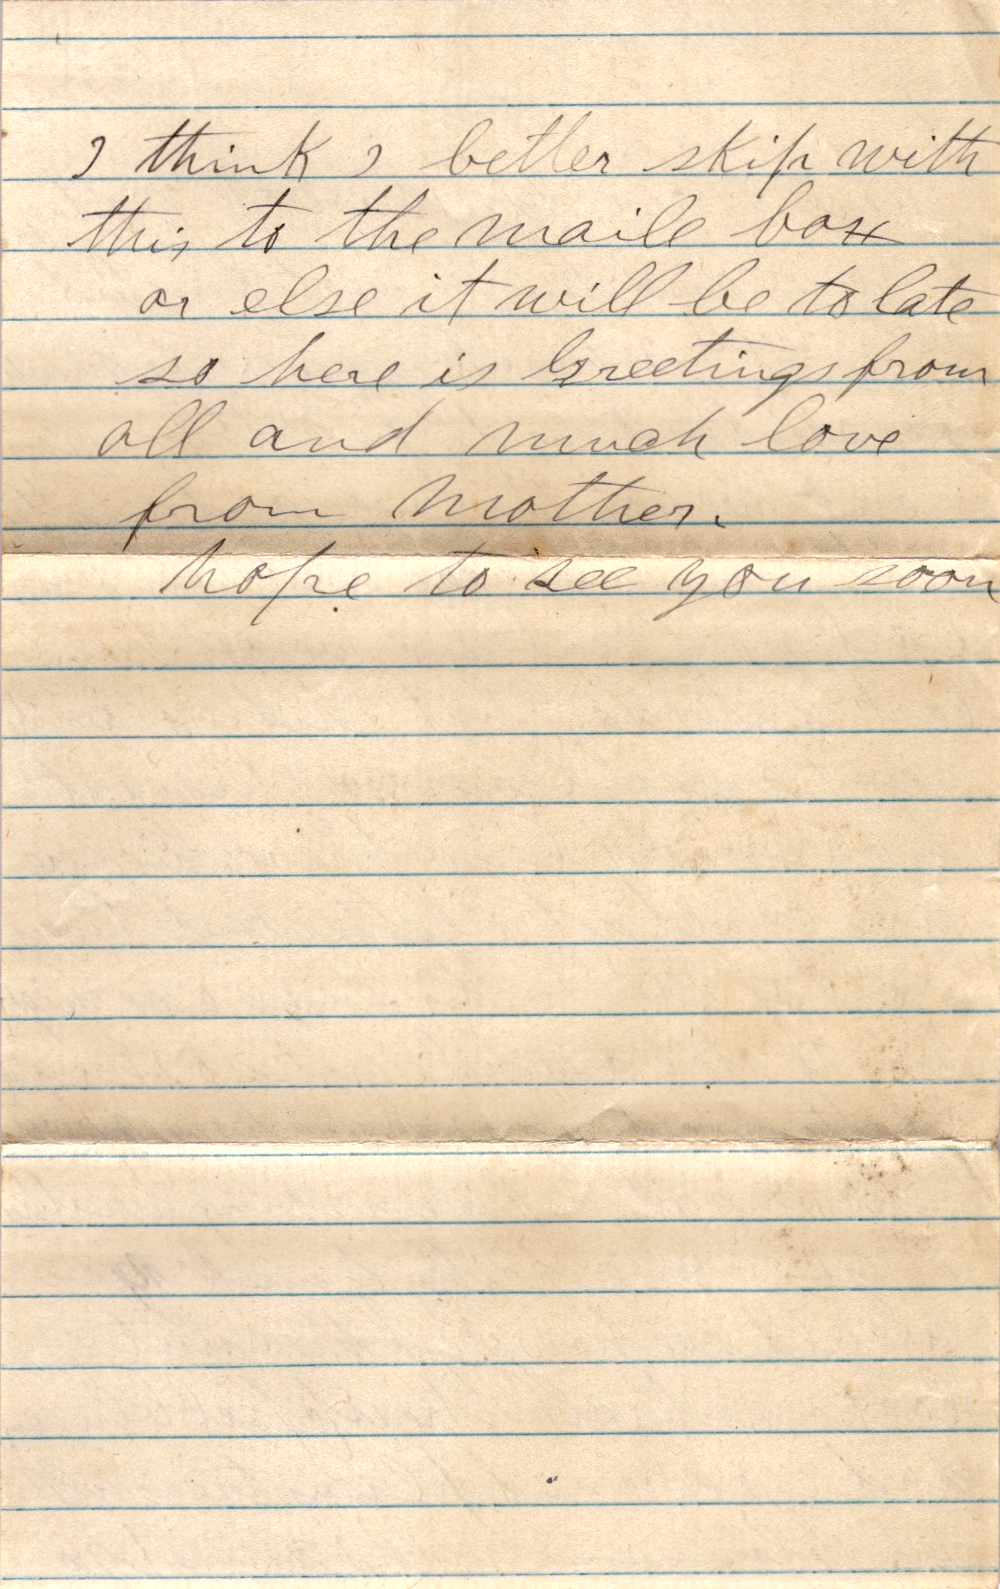 I think I better skip with
this to the maile box
or else it will be to late
so here is Greetings from
all and much love
from Mother.
hope to see you soon